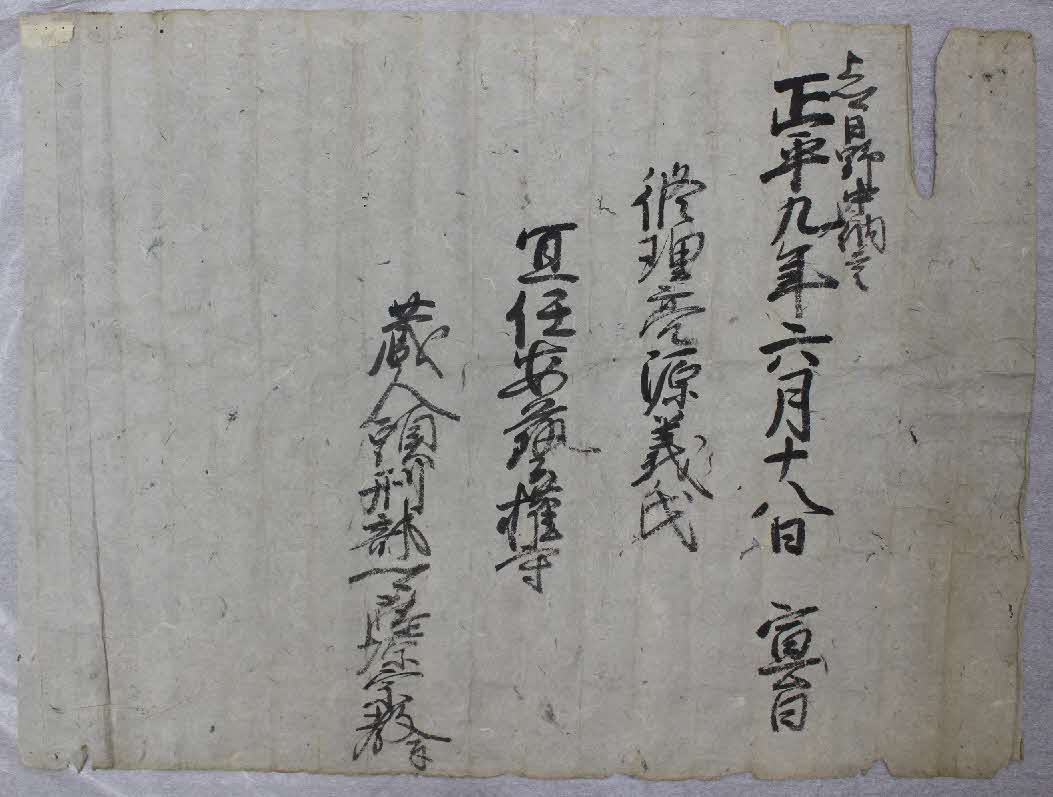 上卿日野中納言
正平九年六月十八日 宣旨
修理亮源義氏
宜任安藝權守
蔵人頭刑部卿藤原宗教奉